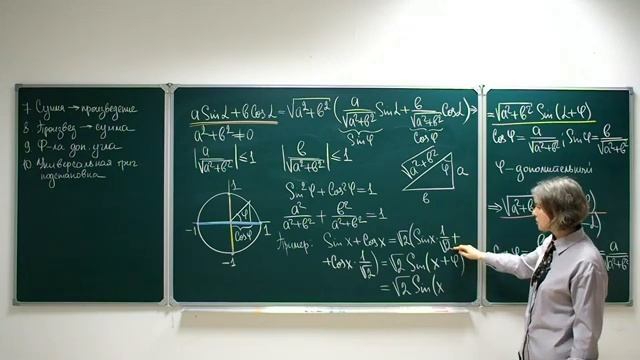 7 Сумма → произведение
8 Произвед → сумма
9 Ф-ла доп. угла
10 Универсальная триг подстановка
a Sinα + b Cosα = √a²+b² (a/√a²+b² Sinα + b/√a²+b² Cosα) →
Sinφ Cosφ
a²+b² ≠ 0
|a/√a²+b²| ≤ 1 |b/√a²+b²| ≤ 1
√a²+b² φ a
b
Sin²φ + Cos²φ = 1
a²/a²+b² + b²/a²+b² = 1
1
-1 φ 1
Cosφ
-1
Пример: Sin x + Cos x = √2 (Sin x · 1/√2 +
+ Cos x · 1/√2) = √2 Sin(x + φ)
= √2 Sin(x
= √a²+b² Sin(α+φ)
Cosφ = a/√a²+b², Sinφ = b/√a²+b²
φ - дополнительный
⇒ √a²+b²
a/√a²+b²